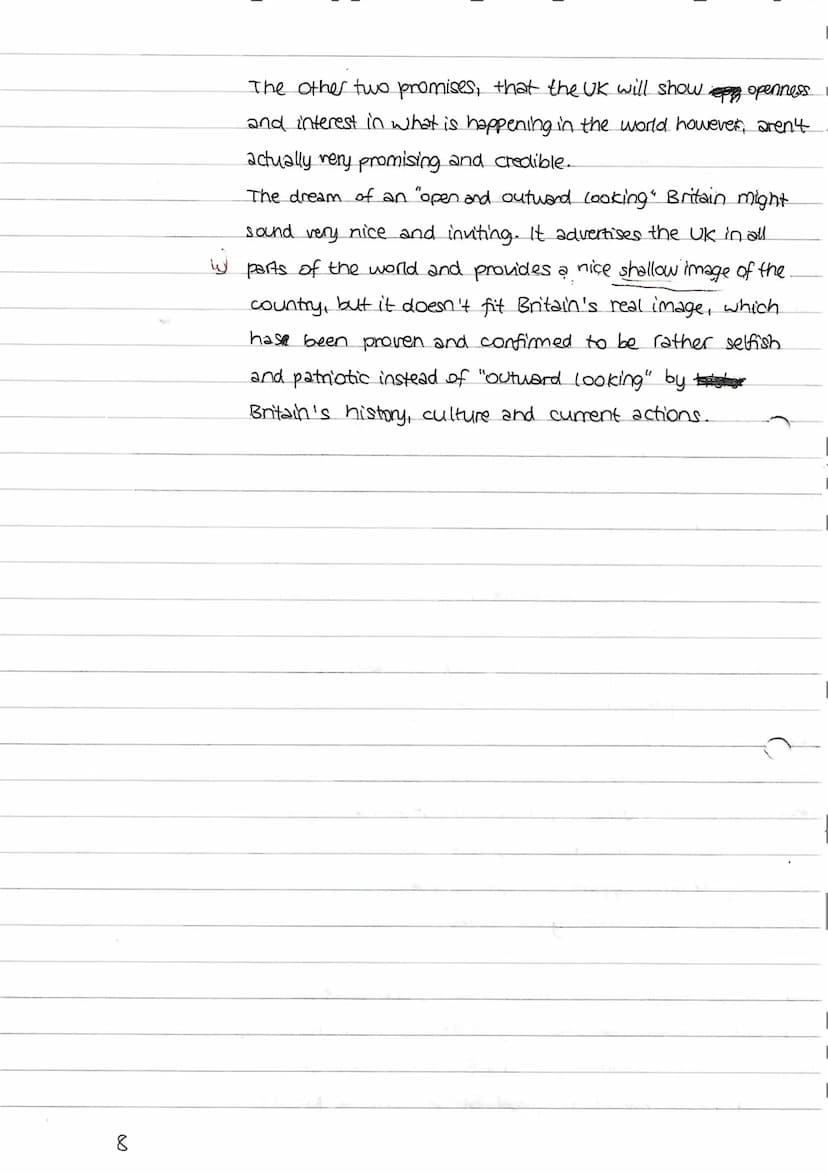 The other two promises, that the UK will show openness
and interest in what is happening in the world however, aren't
actually very promising and credible.
The dream of an "open and outward looking" Britain might
sound very nice and inviting. It advertises the UK in all
W parts of the world and provides a nice shallow image of the
country, but it doesn't fit Britain's real image, which
has been proven and confirmed to be rather selfish
and patriotic instead of "outward looking" by
Britain's history, culture and current actions.
8